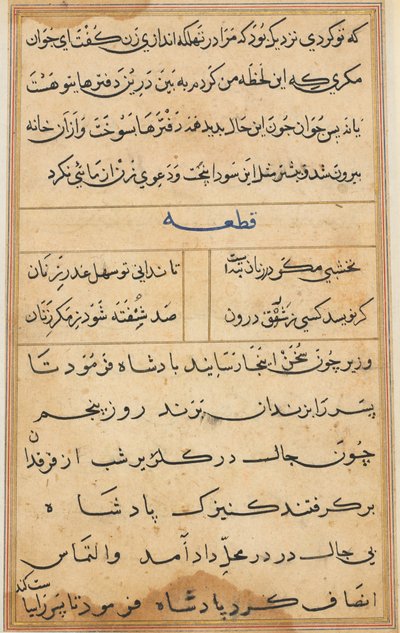 که تو کردی نزدیک بود که مرا در تهلکه اندازی زن کفت ای جوان
مکری که این لحظه من کردم به بین درین دفترها بتو هست
یا نه پس جوان چون این حال بدید همه دفترها بسوخت و از آن خانه
بیرون شد و بیشتر مثل این سودا نپخت و دعوی زن از مائنی نکرد
قطعه
نخشبی مکر در زنان بیداست
تا ندانی تو سهل غدر زنان
کر نویسد کسی ز شقق درون
صد شفته شود ز مکر زنان
وزیر چون سخن اینجا رسانید بادشاه فرمود تا
پسر را بزندان برند روز پنجم
چون جالب در کلژیر شب از فرقدان
برکرفتند کنیزک پادشاه
بی جالب در در محل داد آمد والتماس
انصاف کرد پادشاه فرمود تا پسر را سیاست کند